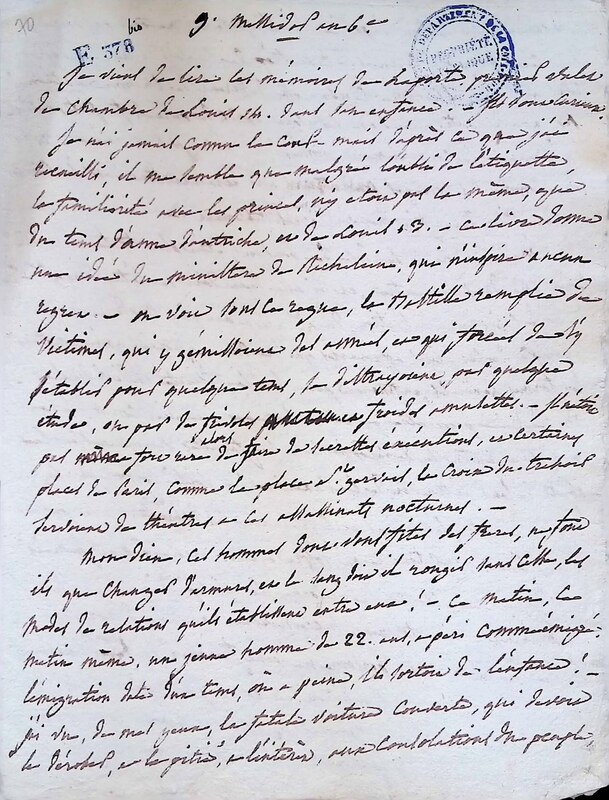 70
9. Messidor an 6e
E 378 bis
Je viens de lire les mémoires de Laporte premier valet
de chambre de Louis 14. dans son enfance — ils sont curieux.
Je n'ai jamais connu la cour mais d'après ce que j'ai
recueilli, il me semble que malgré l'oubli de l'étiquette,
la familiarité avec les princes, n'y étoit pas la même, que
du tems d'anne d'autriche, et de Louis 13. — ce livre donne
une idée du ministère de Richelieu, qui n'inspire aucun
regret. — on voit sous ce regne, la Bastille remplie de
victimes, qui y gémissoient des années, et qui forcés de s'y
établir pour quelque tems, se distrayoient, par quelque
étude, ou par de frivoles froides amusettes. — il n'étoit
pas alors rare de faire de secrettes exécutions, et certaines
places de Paris, comme la place St. gervais, la Croix du trahoir
servoient de théatres à ces assassinats nocturnes. —
Mon dieu, ces hommes dont vous fites des freres, ne font
ils que changer d'armures, et le sang doit il rougir sans cesse, les
modes de relations qu'ils établissent entre eux! — ce matin, ce
matin même, un jeune homme de 22. ans, a péri comme émigré.
l'émigration date d'un tems, où à peine, il sortoit de l'enfance! —
j'ai vu, de mes yeux, la fatale voiture couverte, qui devoit
le dérober, à la pitié, à l'intérêt, aux consolations du peuple